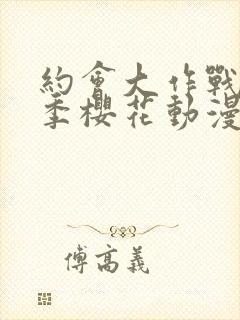 約會大作戰
季櫻花動漫
傅高義